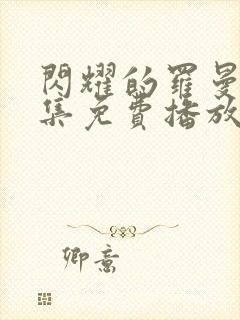 閃耀的羅曼
集免費播放
卿意